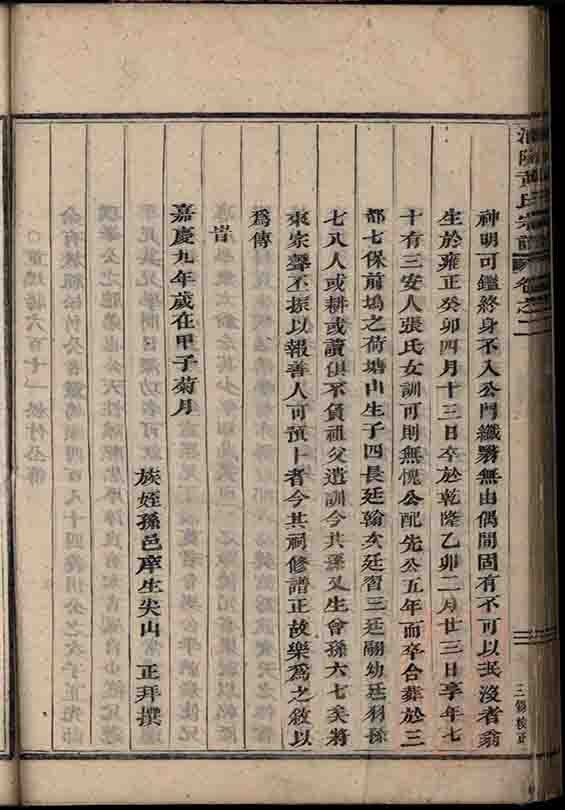 黃氏宗譜 卷之二
三錫校正
神明可鑑終身不入公門纖翳無由偶間固有不可以泯沒者翁
生於雍正癸卯四月十三日卒於乾隆乙卯二月廿三日享年七
十有三安人張氏女訓可則無愧公配先公五年而卒合葬於三
都七保前塢之荷塘山生子四長廷翰次廷習三廷翮幼廷羽孫
七八人或耕或讀俱不負祖父遺訓今其孫又生曾孫六七矣將
來家聲不振以報善人可預卜者今其祠修譜正故樂為之敘以
為傳
旹
嘉慶九年歲在甲子菊月
族姪孫邑庠生尖山 正拜撰